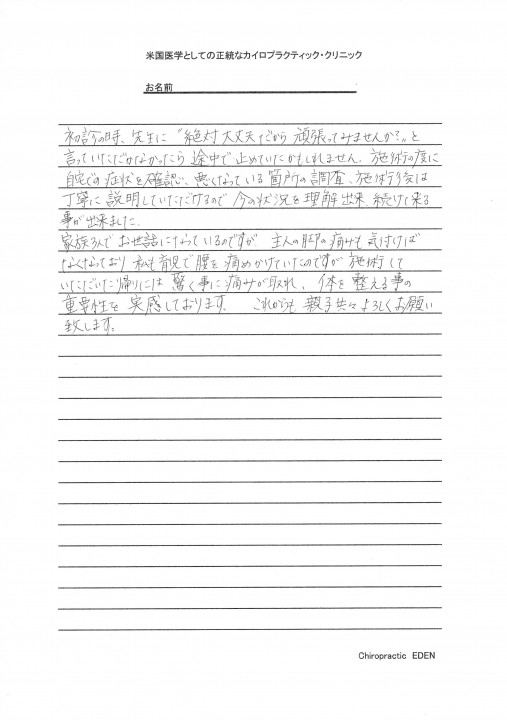 米国医学としての正統なカイロプラクティック・クリニック
お名前
初診の時、先生に"絶対大丈夫だから頑張ってみませんか?"と
言っていただかなかったら途中で止めていたかもしれません。施術の度に
自宅での症状を確認、悪くなっている箇所の調査、施術後は
丁寧に説明していただけるので今の状況を理解出来、続けて来る
事が出来ました。
家族3人でお世話になっているのですが、主人の肩の痛みも気付けば
なくなっており 私も育児で腰を痛めかけていたのですが施術して
いただいた帰りには 驚く事に痛みが取れ、体を整える事の
重要性を実感しております。 これからも親子共々よろしくお願い
致します。
Chiropractic EDEN